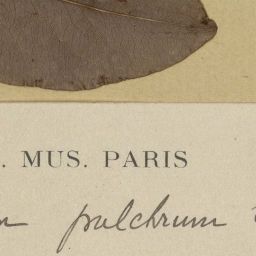 . MUS. PARIS
pulchrum